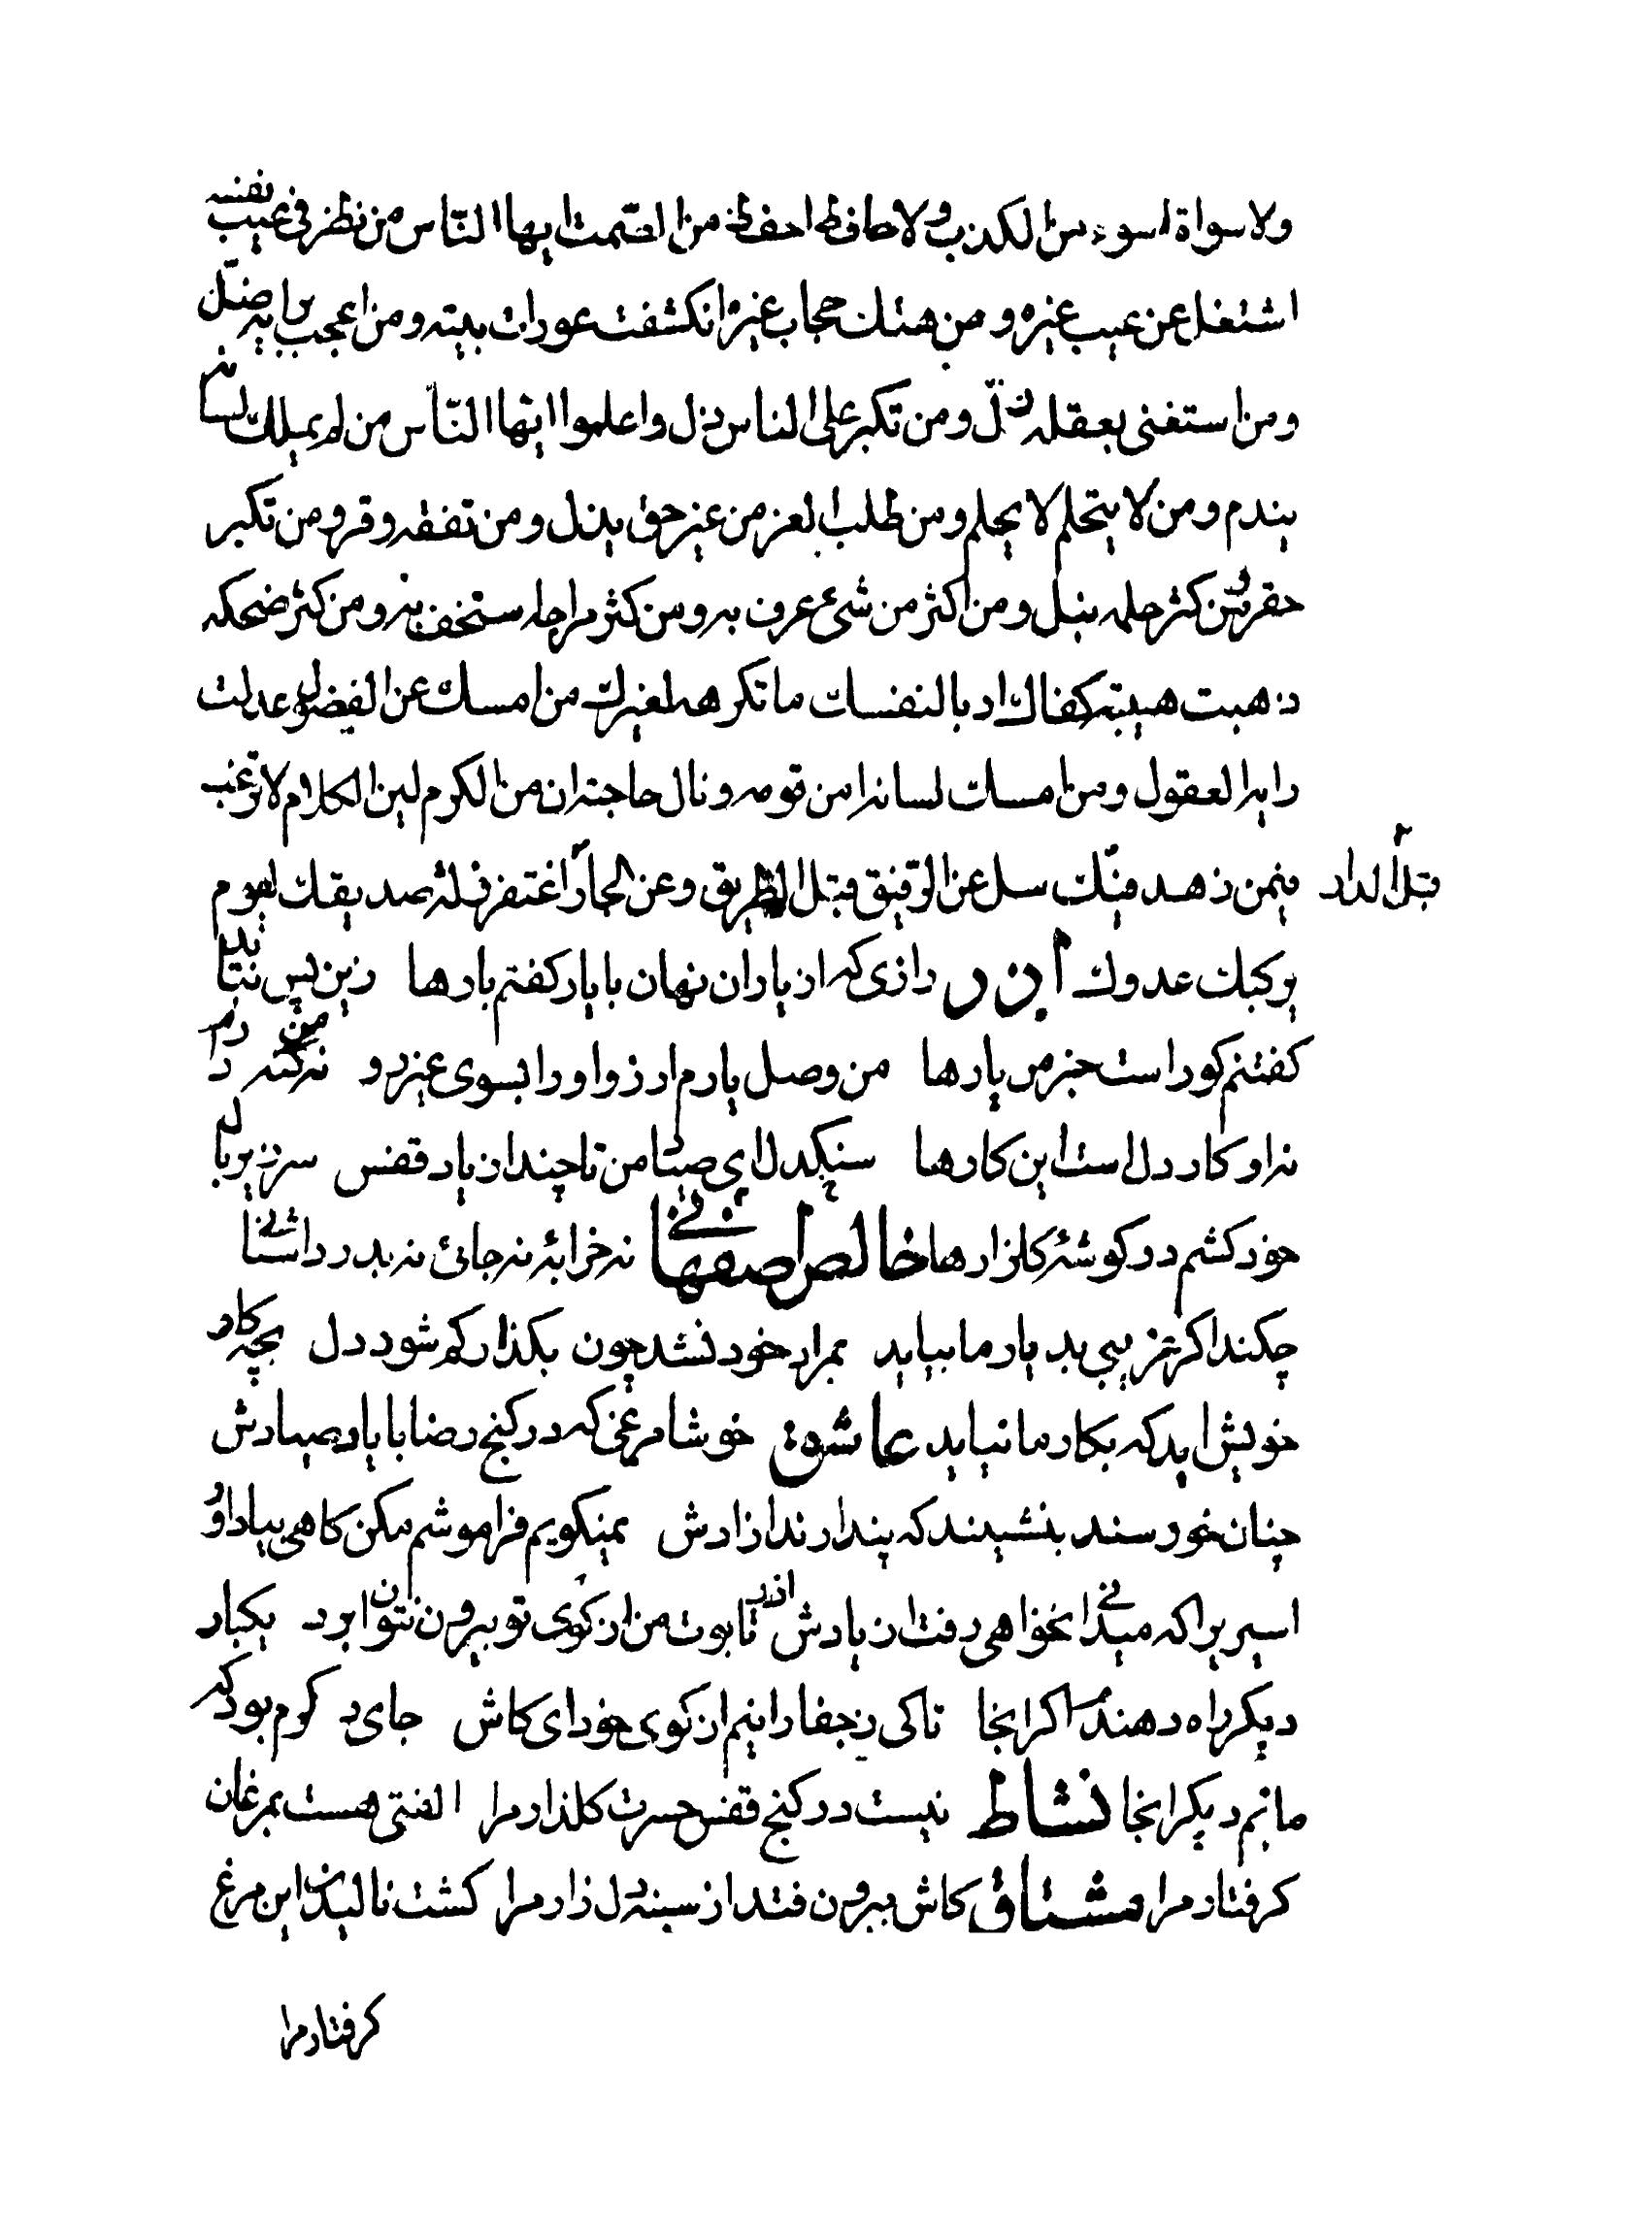 ولا سواة اسوء من الکذب ولا حافظ احفظ من الصّمت ایها النّاس من نظر فی عیب نفسه
اشتغل عن عیب غیره و من هتك حجاب غیره انکشفت عورات بیته و من اعجب برایه ضلّ
و من استغنی بعقله زلّ و من تکبر علی الناس ذل و اعلموا ایّها النّاس من لم یملك لسانه
یندم و من لا یتحلم لا یحلم و من طلب العز من غیر حق یذل و من تفقه وقر و من تکبر
حقر و من کثر حلمه نبل و من اکثر من شیء عرف به و من کثر مزاحه ستخف به و من کثر ضحکه
ذهبت هیبته کفاك ادبا لنفسك ما تکرهه لغیرك من امسك عن الفضول عدلت
رایه العقول و من امسك لسانه امن قومه و نال حاجته ان من الکرم لین الکلام لا ترغب
فیمن زهد فیك سل عن الرّفیق قبل الطریق و عن الجار قبل الدار اغتفر زلة صدیقك لیوم
یرکبك عدوك آذر رازی که از یاران نهان با یار کفتم بارها زین پس نتابد
کفتنم کو راست خبر من یارها من وصل یارم ارزو او را بسوی غیر رو نه کنه من دارم
نه او کار دل است این کارها سنکدل ای صیاد من تا چند از یاد قفس سر زیر بال
خود کشم در کوشهٔ کلزارها خالص اصفهانی نه خرابهٔ نه جائی نه بدر داشنائی
چکند اکر غریبی بدیار ما بیاید بمراد خود نشد چون بکذار کم شود دل بچه کار
خویش اید که بکار ما نیاید عاشق خوشا مرغی که در کنج رضا با یاد صیادش
چنان خورسند بنشیند که پندارند ازادش نمیکویم فراموشم مکن کاهی بیاد اور
اسیریرا که میدانی نخواهی رفت از یادش تابوت من از کوی تو بیرون نتوان برد یکبار
دیکر راه دهند اکر اینجا تا کی ز جفا رانیم از کوی خود ای کاش جای دکرم بود که
مانم دیکر اینجا نشاط نیست در کنج قفس حسرت کلذار مرا الفتی هست بمرغان
کرفتار مرا مشتاق کاش بیرون فتد از سینه دل زار مرا کشت نالیدن این مرغ
کرفتار مرا